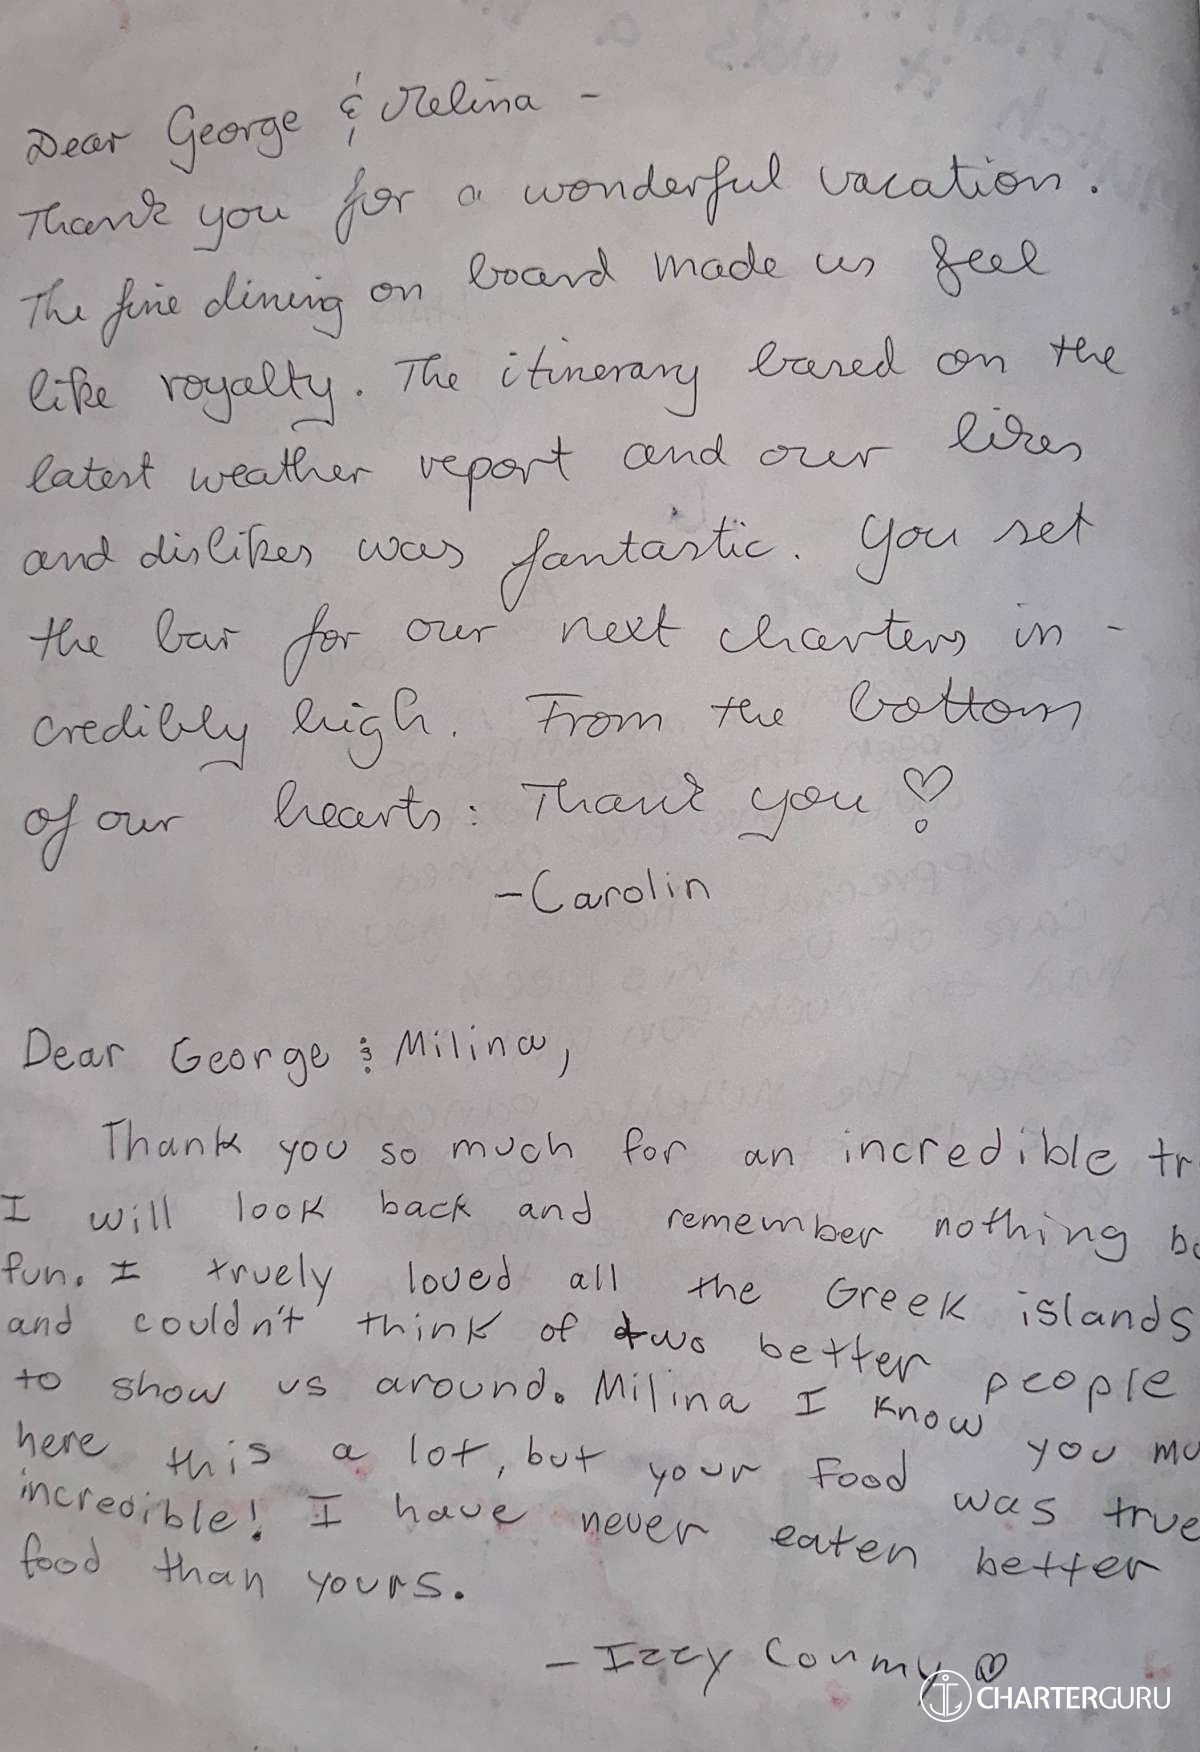 Dear George & Melina -
Thank you for a wonderful vacation.
The fine dining on board made us feel
like royalty. The itinerary based on the
latest weather report and our likes
and dislikes was fantastic. You set
the bar for our next charters in-
credibly high. From the bottom
of our hearts: Thank you ♡
-Carolin
Dear George & Milina,
Thank you so much for an incredible tr
I will look back and remember nothing b
fun. I truely loved all the Greek islands
and couldn't think of two better people
to show us around. Milina I know you mu
here this a lot, but your food was true
incredible! I have never eaten better
food than yours.
- Izzy Conmy ♡
CHARTERGURU